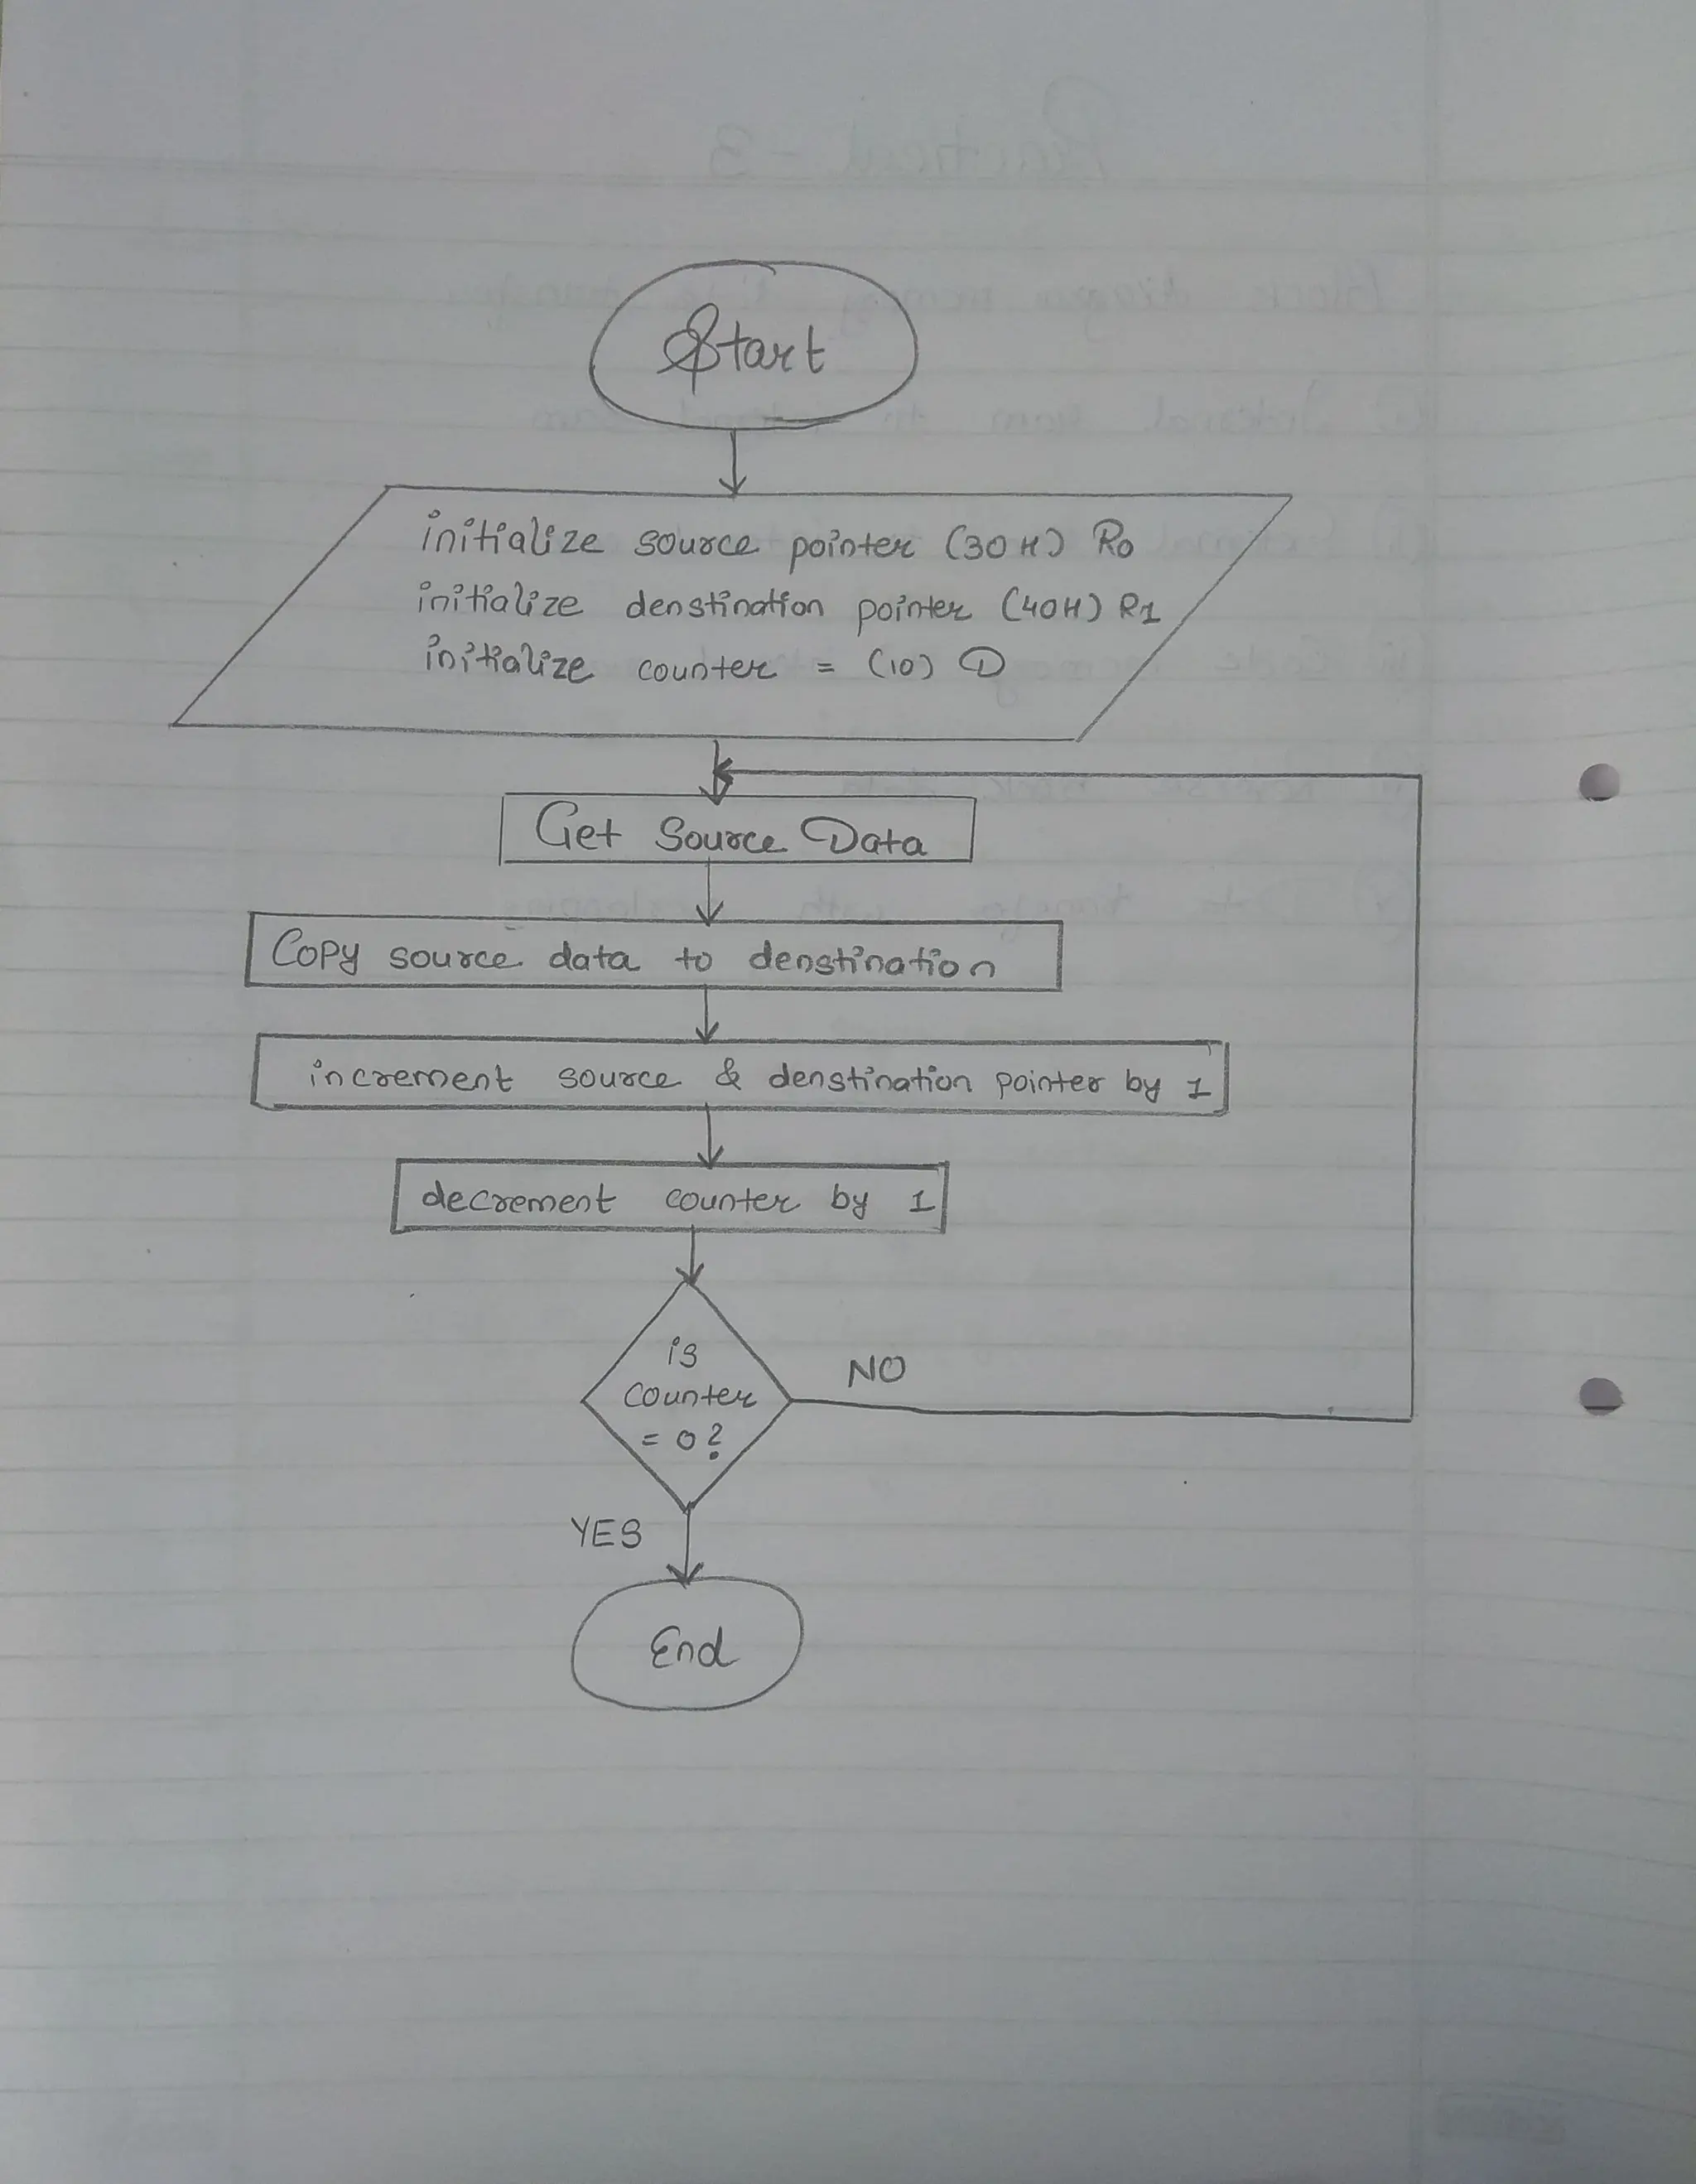 Start
initialize source pointer (30H) R0
initialize denstination pointer (40H) R1
initialize counter = (10) D
Get Source Data
Copy source data to denstination
increment source & denstination pointer by 1
decrement counter by 1
is
counter
= 0?
NO
YES
End